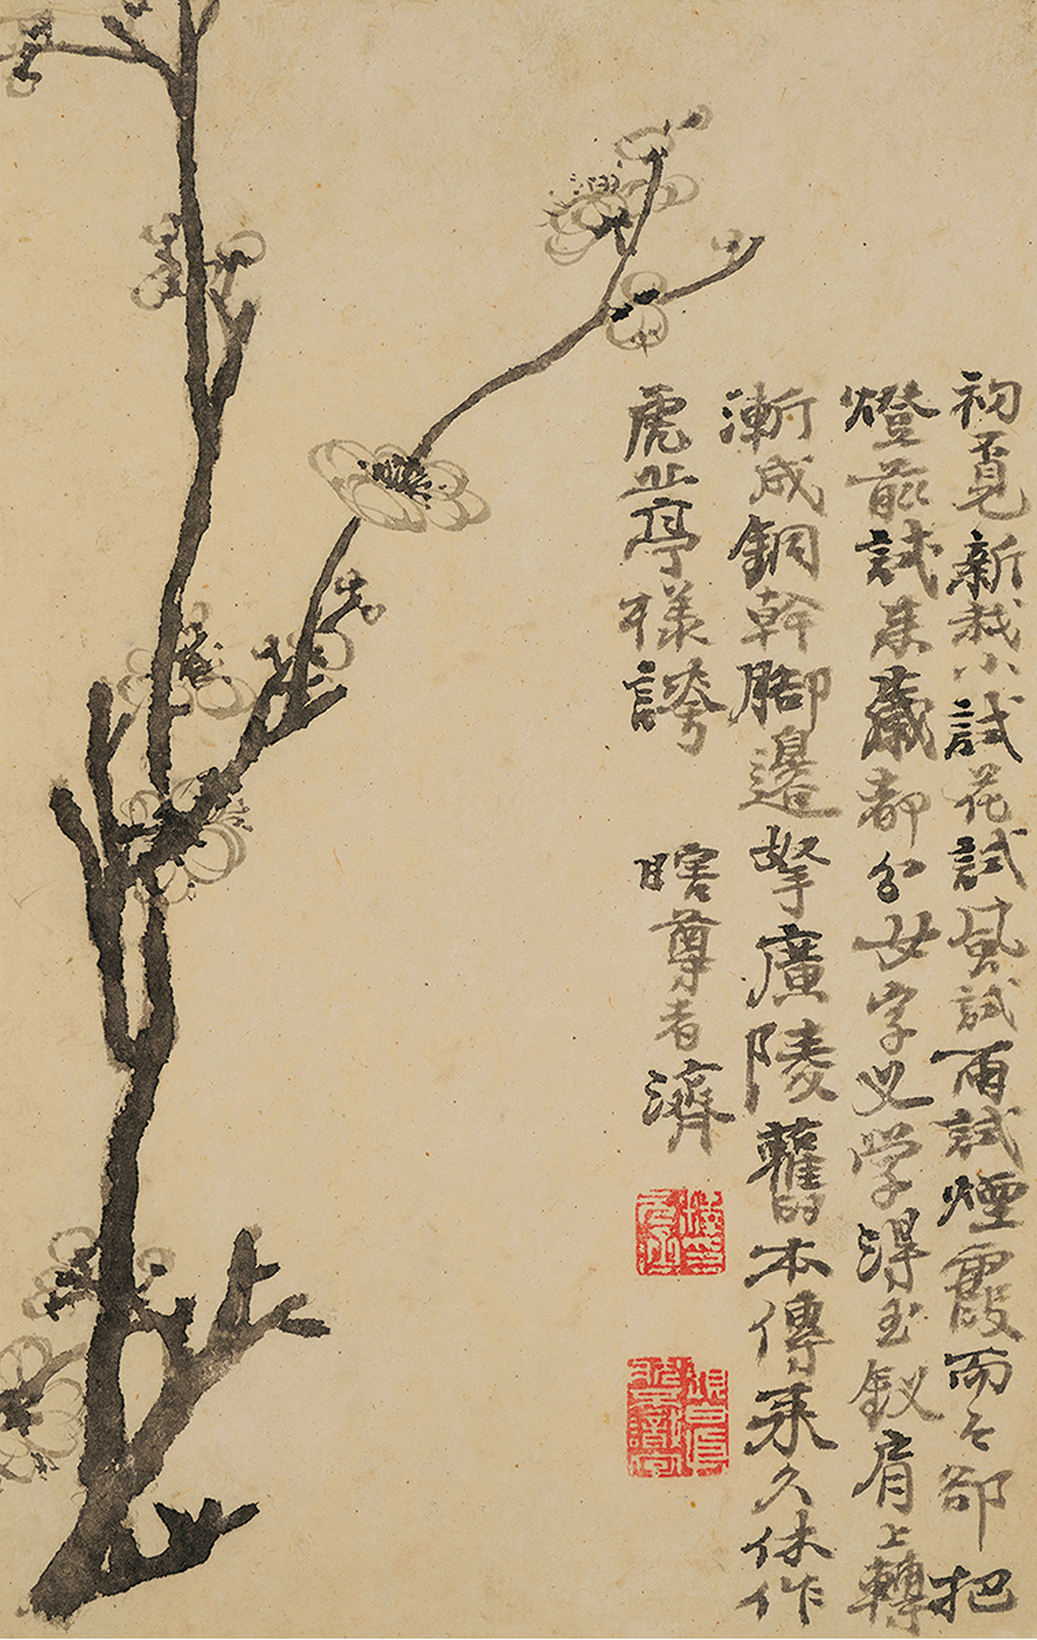 初覓新栽小試花試風試雨試煙霞而今卻把
燈前試來歲都分女字叉学得玉釵肩上轉
漸成銅幹腳邊拏廣陵舊本傳來久休作
虎丘亭樣誇
瞎尊者濟